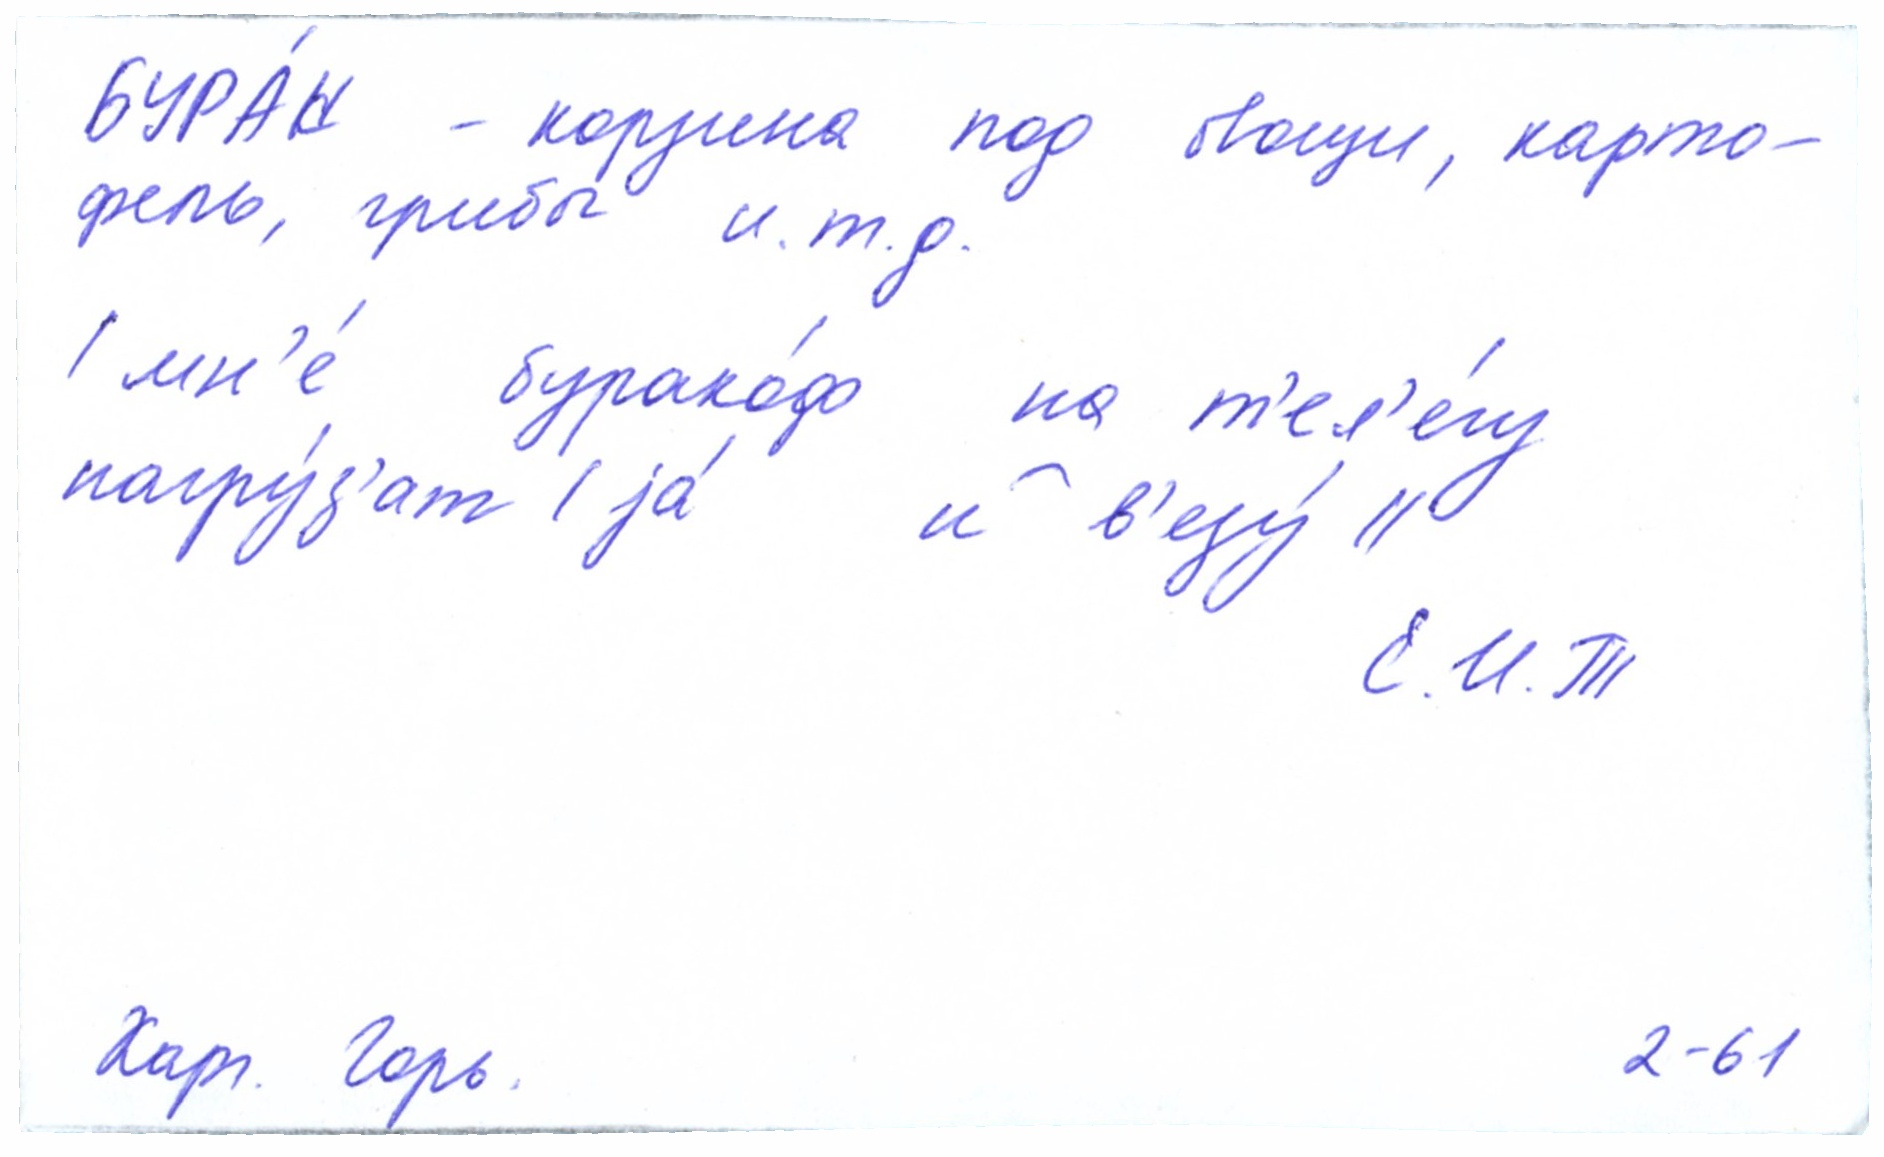 БУРА́К - корзина под овощи, карто-
фель, грибы и.т.д.
/ мн'е́ бурако́ф на т'ел'е́гу
нагру́з'ат / jа́ и в'езу́ //
Е.И.Т
Хар. Горь.
2-61